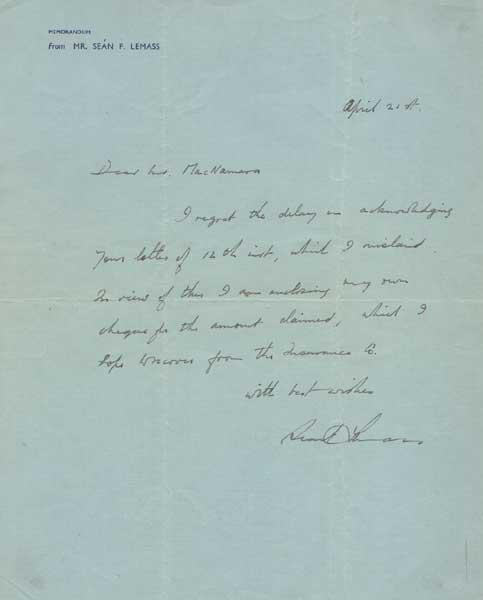 MEMORANDUM
From MR. SEÁN F. LEMASS
April 21st.
Dear Mr. MacNamara
I regret the delay in acknowledging
your letter of 12th inst, which I mislaid.
In view of this I am enclosing my own
cheque for the amount claimed, which I
hope to recover from the Insurance Co.
with best wishes
Sean F Lemass